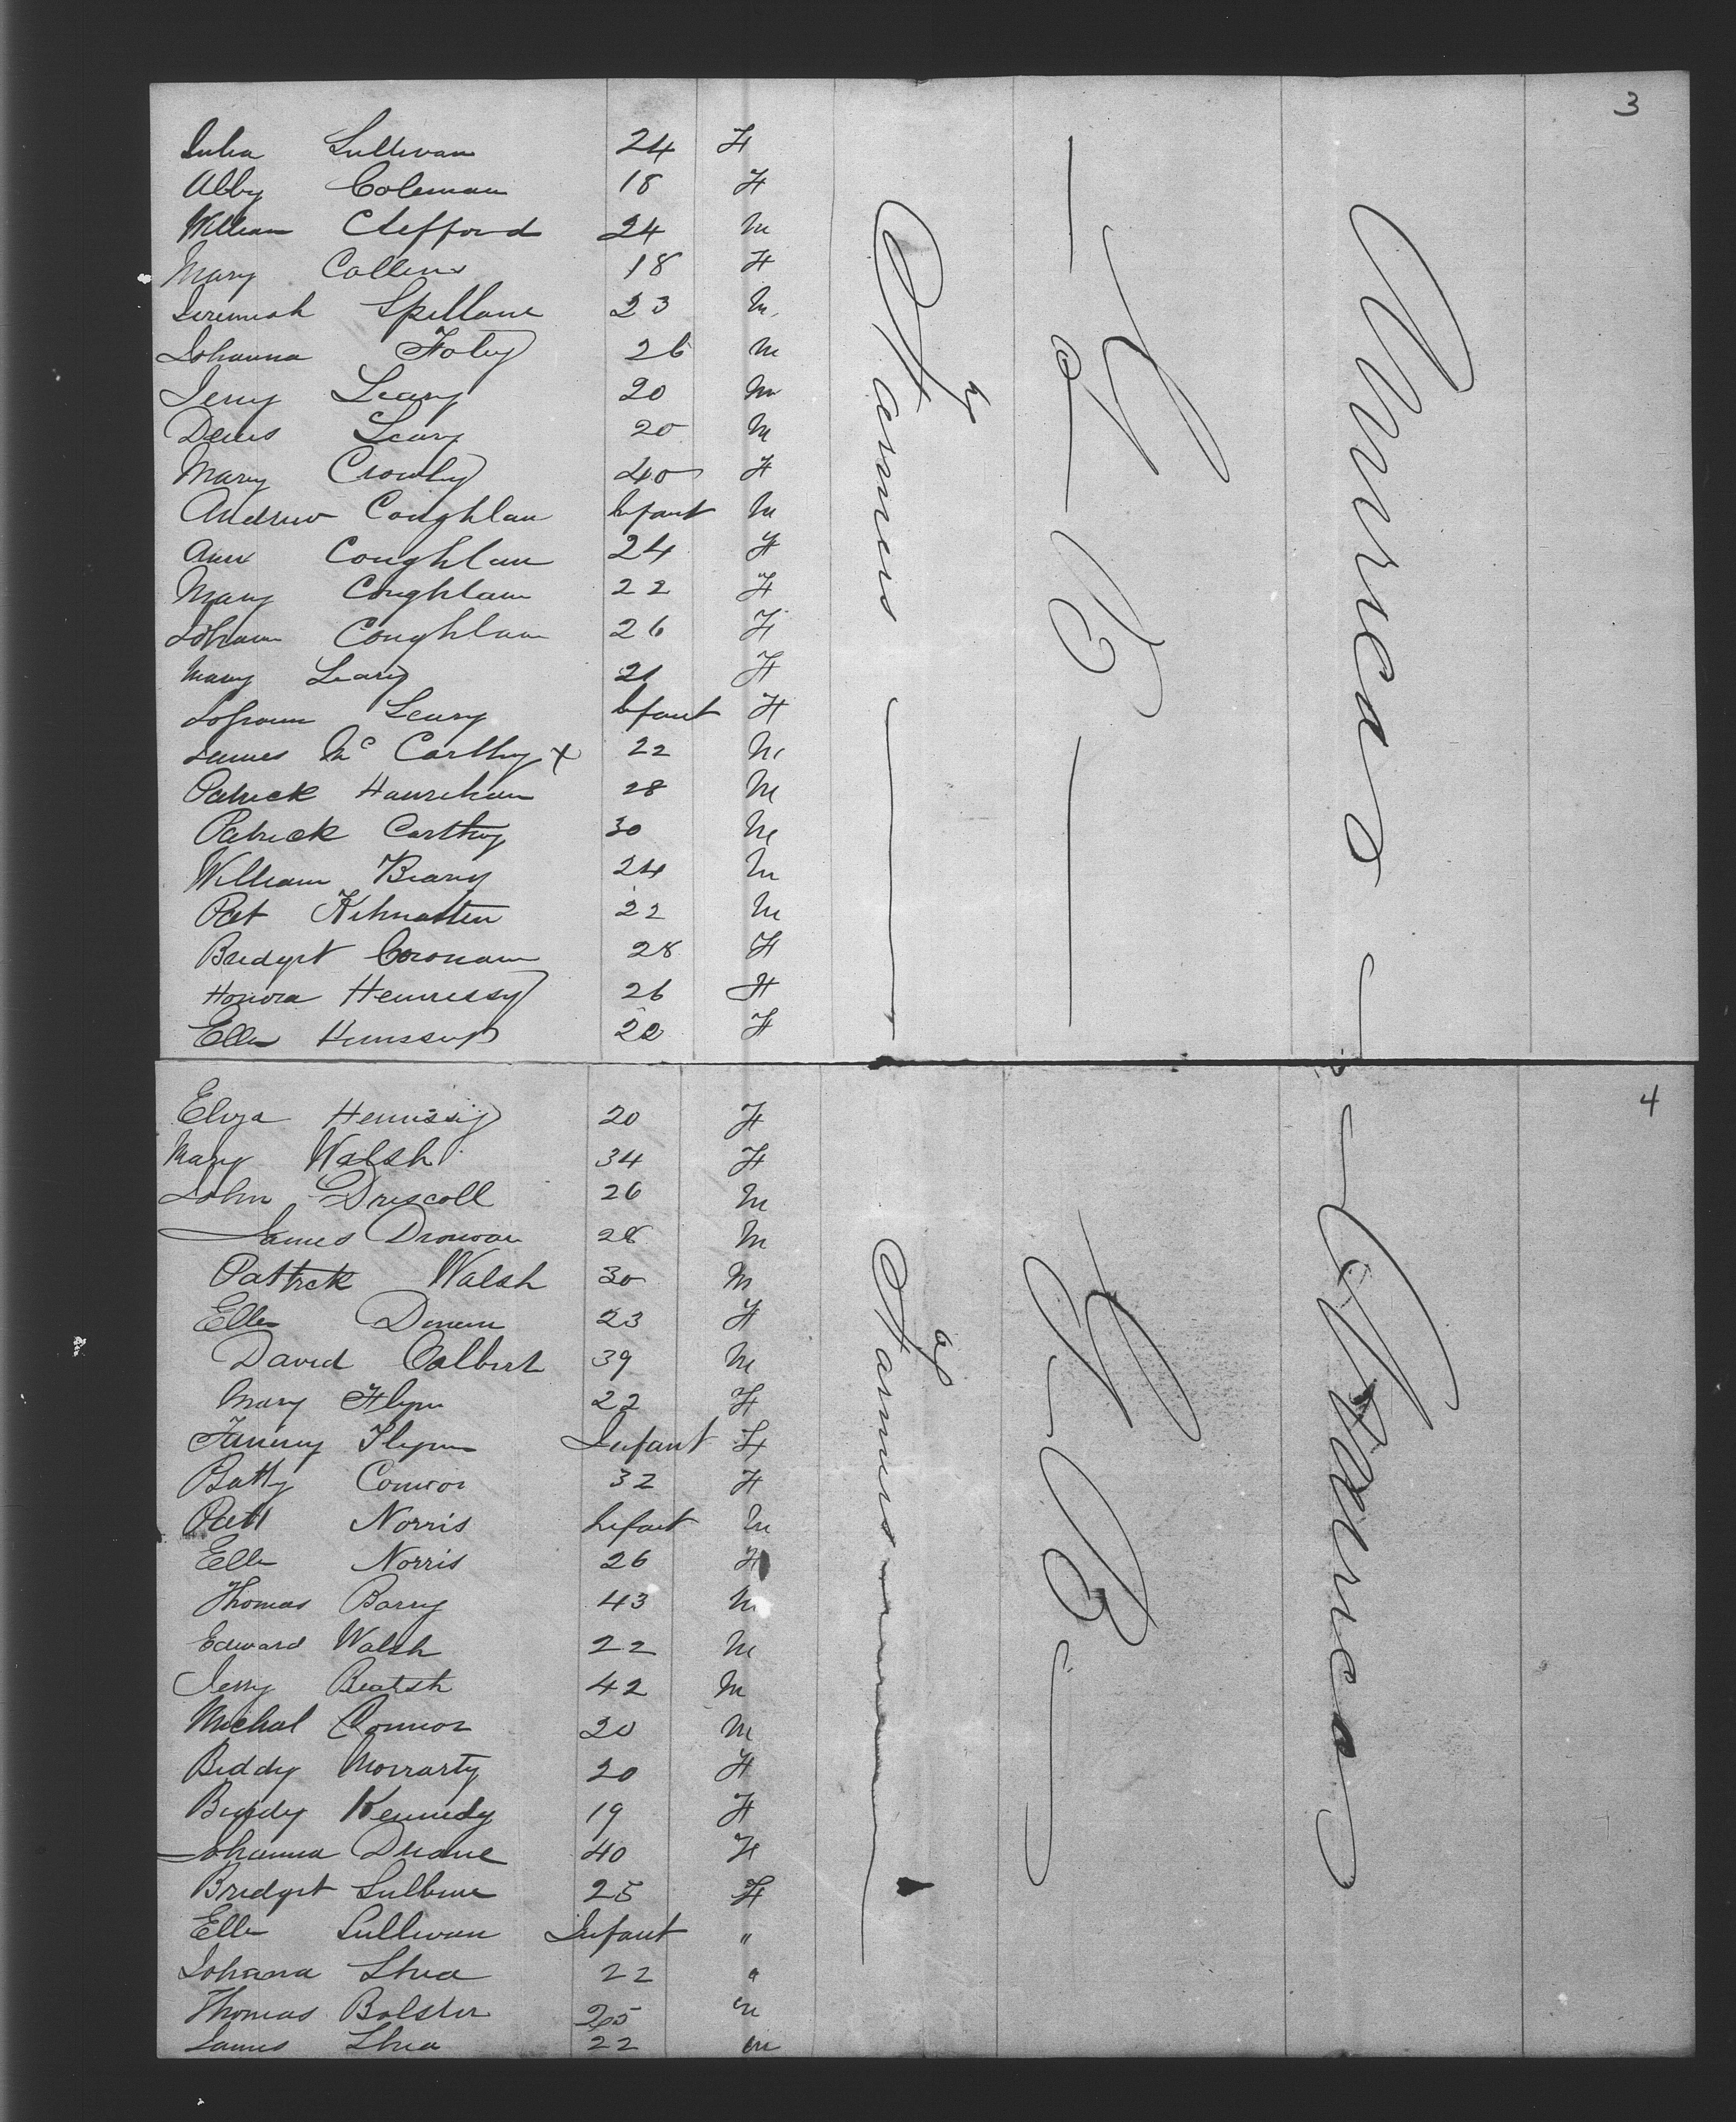 3
Julia Sullivan 24 F
Abby Coleman 18 F
William Clifford 24 M
Mary Collins 18 F
Jeremiah Spillane 23 M
Johanna Foley 26 M
Jerry Leary 20 M
Denis Leary 20 M
Mary Crowley 40 F
Andrew Coughlan Infant M
Ann Coughlan 24 F
Mary Coughlan 22 F
Johann Coughlan 26 F
Mary Leary 21 F
Johann Leary Infant F
James Mc Carthy x 22 M
Patrick Hanrihan 28 M
Patrick Carthy 30 M
William 24 M
Pat 22 M
Bridget Coronan 28 F
Honora Hennessy 26 F
Ellen Hennessy 22 F
Farmers
G B
America
4
Eliza Hennissy 20 F
Mary Walsh 34 F
John Driscoll 26 M
James Dronovan 28 M
Pattrick Walsh 30 M
Ellen 23 F
David Colbert 39 M
Mary Flynn 22 F
Fanny Flynn Infant F
Batty Connor 32 F
Patt Norris Infant M
Ellen Norris 26 F
Thomas Barry 43 M
Edward Walsh 22 M
Jerry 42 M
Michal Connor 20 M
Biddy Morrarty 20 F
Biddy Kennedy 19 F
Johanna Duane 40 F
Bridget 25 F
Ellen Sullivan Infant "
Johana Shea 22 "
Thomas Bolster 25 m
James Shea 22 m
Farmers
G B
America